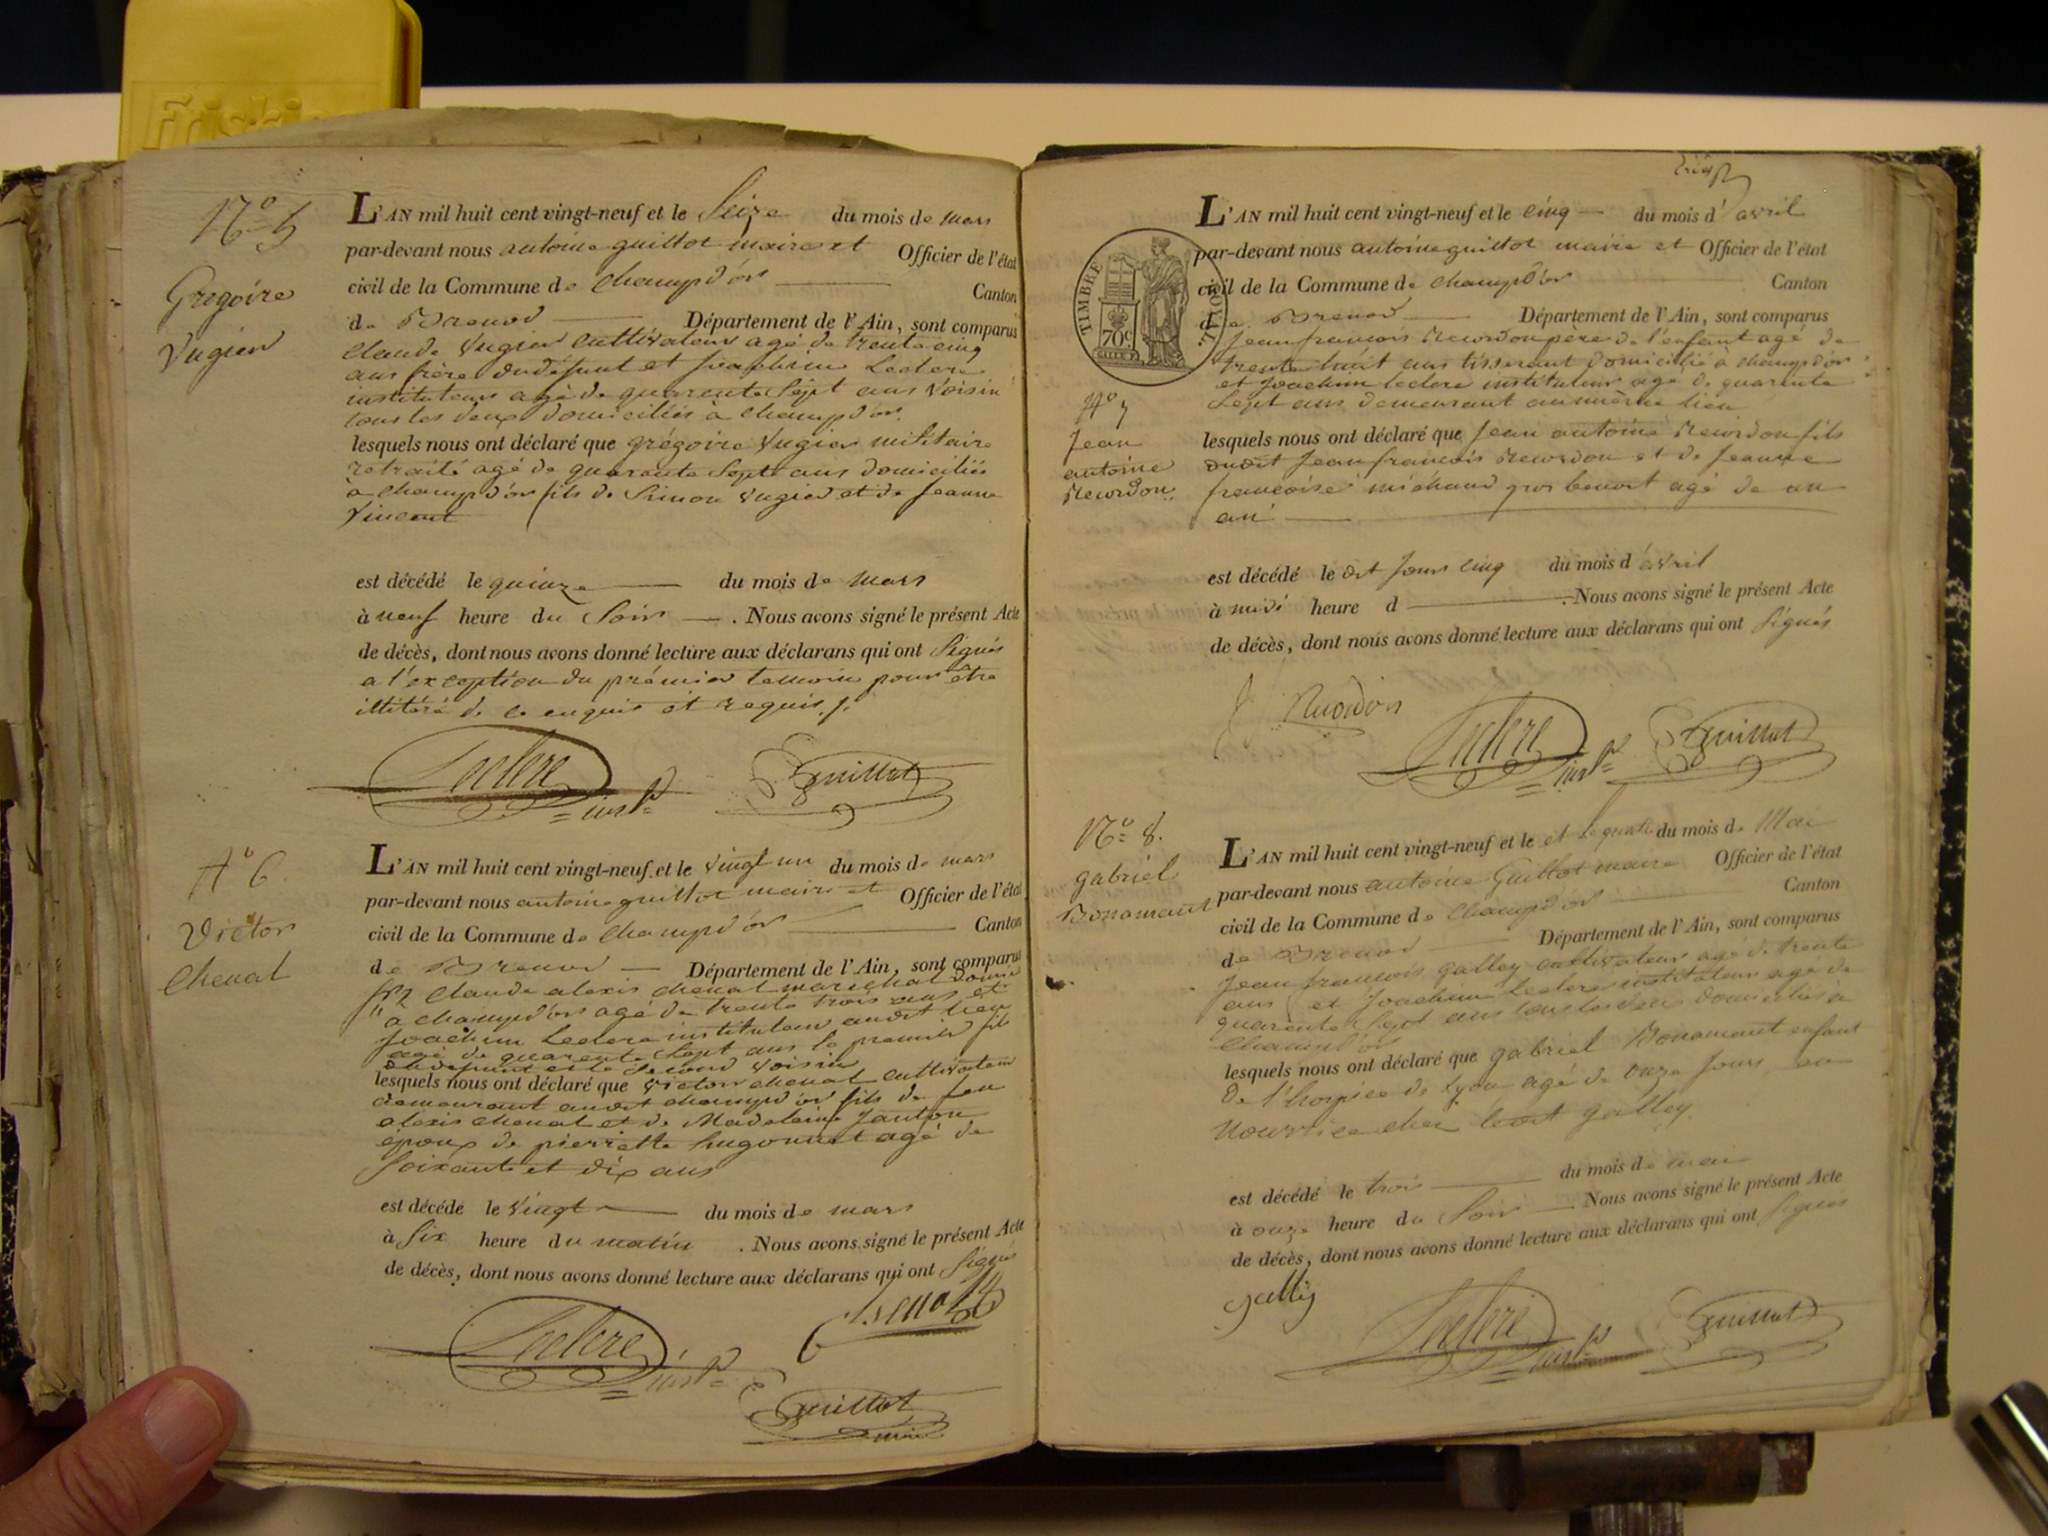 Friskies
N.º 5
Gregoire
Vugier
L'AN mil huit cent vingt-neuf et le Seize du mois de mars
par-devant nous antoine guillot maire et Officier de l'état
civil de la Commune de Champd'or Canton
de Brenod Département de l'Ain, sont comparus
Claude Vugier cultivateur agé de trente cinq
ans frère du défunt et Joachim Leclere
instituteur agé de quarente Sept ans Voisin
tous les deux domiciliés à Champd'or.
lesquels nous ont déclaré que grégoire Vugier militaire
retraité agé de quarante Sept ans domiciliés
à Champd'or fils de Simon Vugier et de Jeanne
Vincent
est décédé le quinze du mois de mars
à neuf heure du Soir . Nous avons signé le présent Acte
de décès, dont nous avons donné lecture aux déclarans qui ont Signés
a l'exception du prémier temoin pour être
illitéré de ce enquis et requis ./.
Leclere inst.r
Guillot
N.º 6.
Victor
Chenat
L'AN mil huit cent vingt-neuf et le vingt un du mois de mars
par-devant nous antoine guillot maire et Officier de l'état
civil de la Commune de Champd'or Canton
de Brenod Département de l'Ain, sont comparus
Claude alexis Chenat marechal domié
à Champd'or agé de trente trois ans et
Joachim Leclere instituteur audit lieu
agé de quarente Sept ans le premier fils
du défunt et le Second Voisin
lesquels nous ont déclaré que Victor Chenat cultivateur
demeurant audit Champd'or fils de feu
alexis Chenat et de Madelaine Janton
époux de pierrette hugonnet agé de
Soixante et dix ans
est décédé le Vingt du mois de mars
à Six heure du matin . Nous avons signé le présent Acte
de décès, dont nous avons donné lecture aux déclarans qui ont Signé
Leclere inst.r
Guillot
maire
TIMBRE ROYAL
70c
L'AN mil huit cent vingt-neuf et le cinq du mois d'avril
par-devant nous antoine guillot maire et Officier de l'état
civil de la Commune de Champd'or Canton
de Brenod Département de l'Ain, sont comparus
Jean francois Rewrdon père de l'enfant agé de
trente huit ans tisserant domicilié à Champd'or
et Joachim leclere instituteur agé de quarente
Sept ans demeurant au même lieu
N.º 7
Jean
antoine
Rewrdon
lesquels nous ont déclaré que Jean antoine Rewrdon fils
dudit Jean francois Rewrdon et de Jeanne
francoise michaud gros benoit agé de un
an
est décédé le dit Jour cinq du mois d'avril
à midi heure d . Nous avons signé le présent Acte
de décès, dont nous avons donné lecture aux déclarans qui ont Signés
Leclere inst.r
Guillot
N.º 8.
gabriel
Bonamant
L'AN mil huit cent vingt-neuf et le et le quatre du mois de Mai
par-devant nous antoine Guillot maire Officier de l'état
civil de la Commune de Champd'or Canton
de Brenod Département de l'Ain, sont comparus
Jean francois galley cultivateur agé de trente
ans et Joachim Leclere instituteur agé de
quarente Sept ans tous les deux domiciliés à
Champd'or
lesquels nous ont déclaré que gabriel Bonamant enfant
de l'hospice de Lyon agé de onze Jours en
nourrice chez ledit galley
est décédé le trois du mois de mai
à onze heure du Soir Nous avons signé le présent Acte
de décès, dont nous avons donné lecture aux déclarans qui ont Signés
Leclere inst.r
Guillot